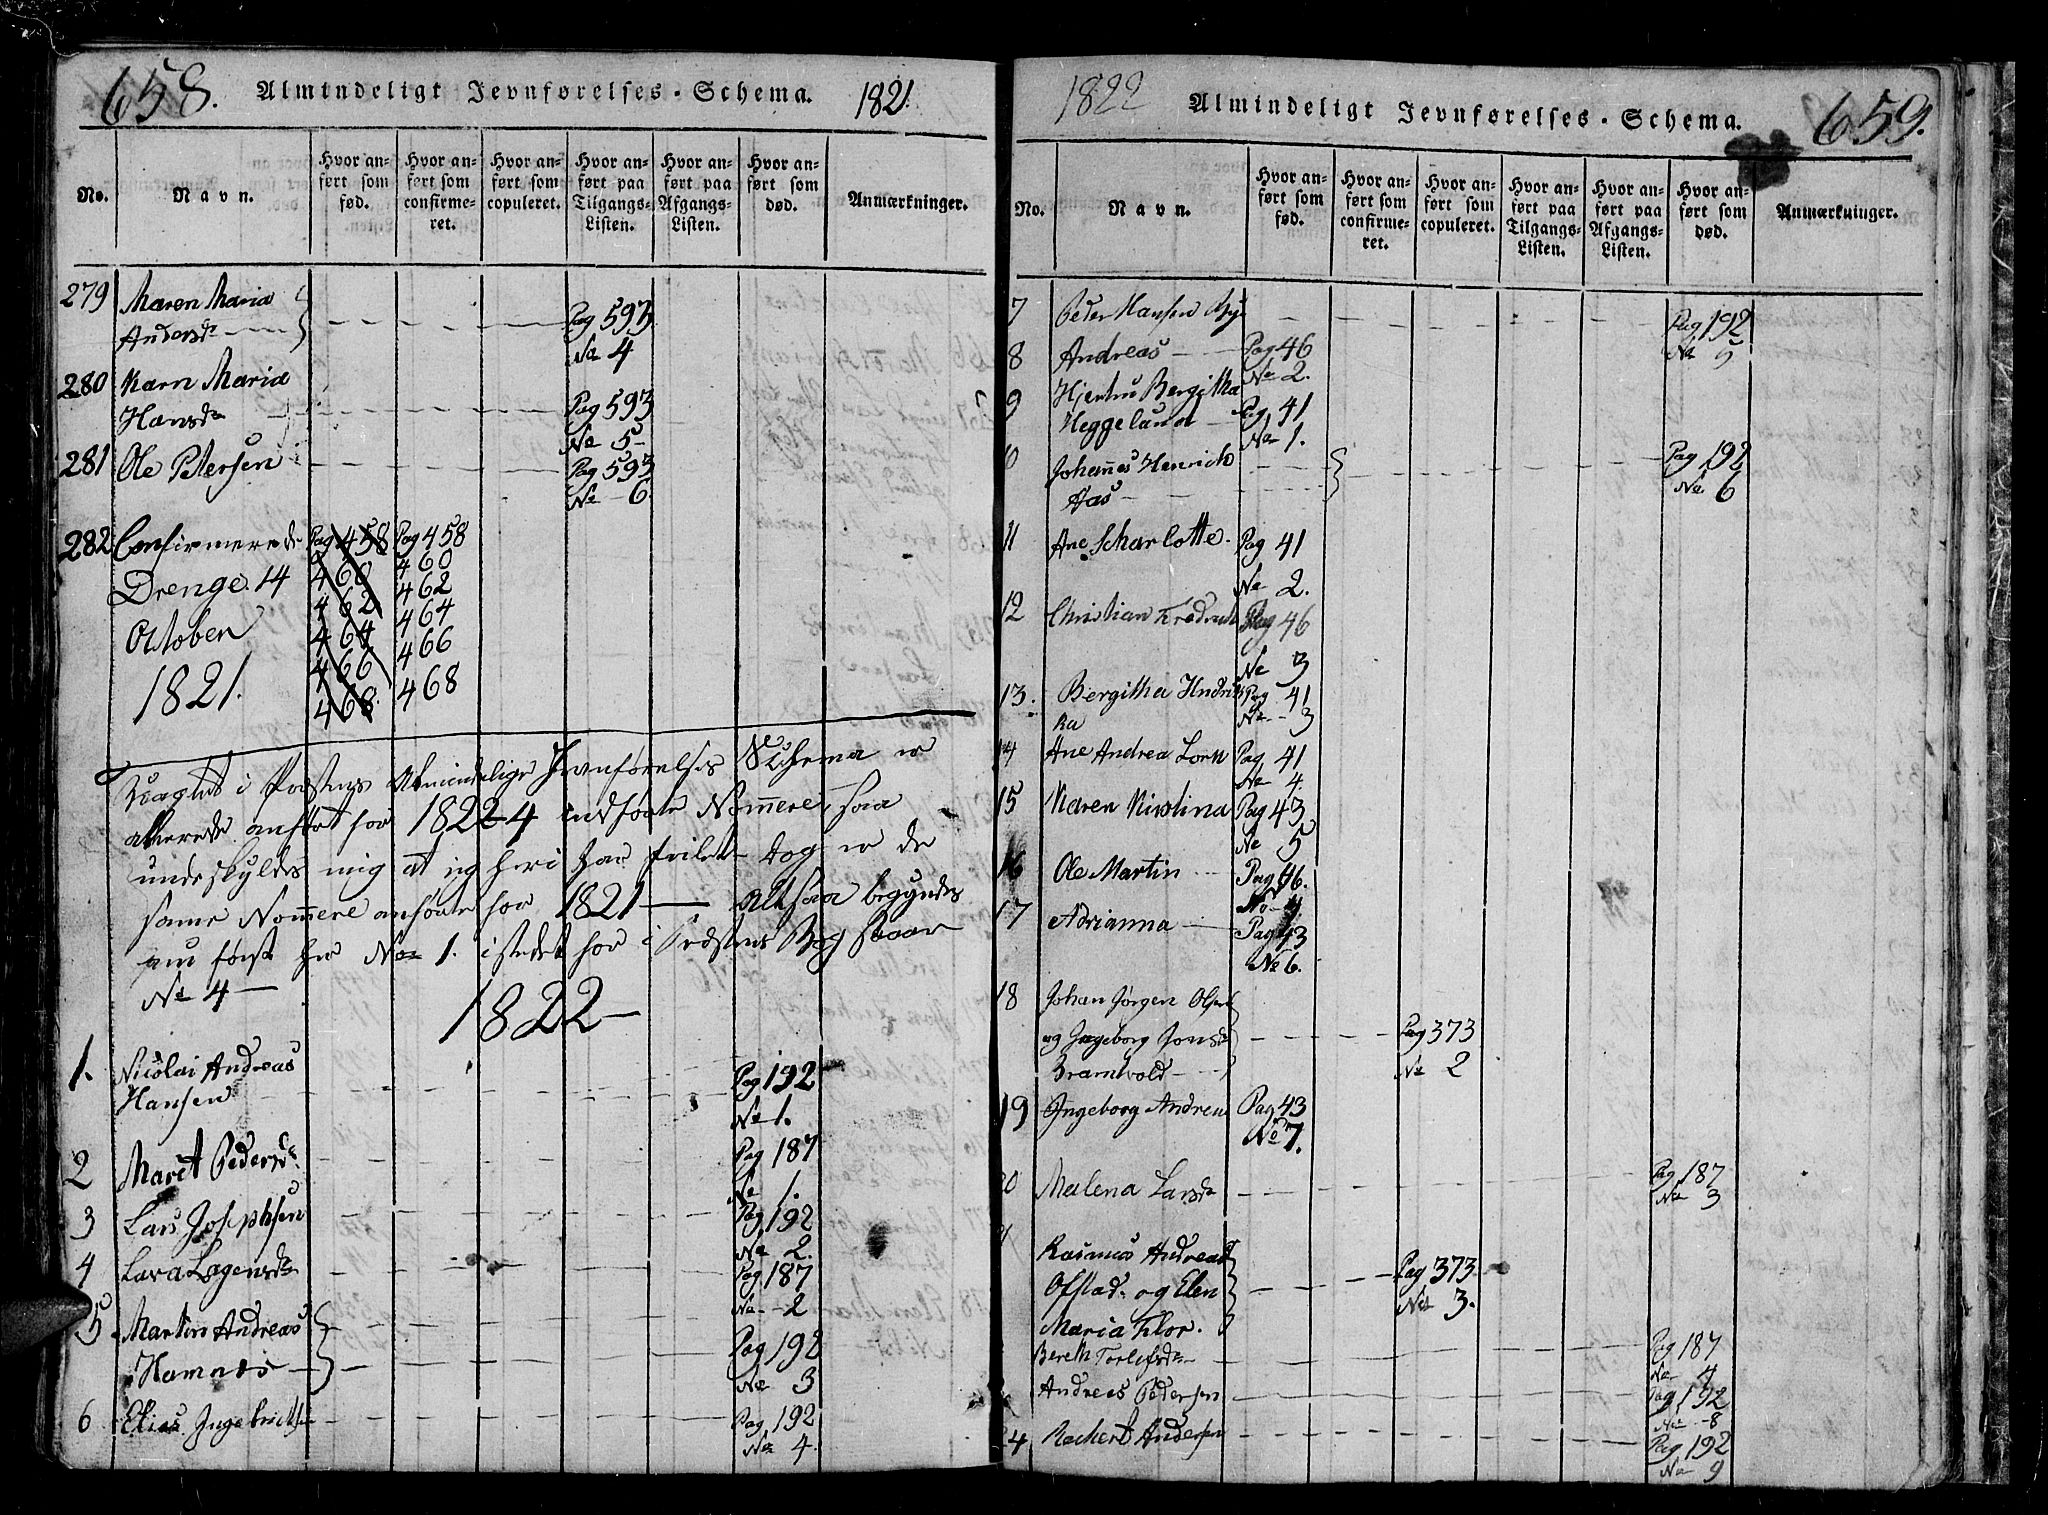 658. Almindeligt Jevnførelses-Schema. 1821.
No. Navn. Hvor anført som fød. Hvor anført som confirmeret. Hvor anført som copuleret. Hvor anført paa Tilgangs-Listen. Hvor anført paa Afgangs-Listen. Hvor anført som død. Anmærkninger.
279 Maren Maria
Andersdr Pag 593
No 4
280 Karn Maria
Hansdr Pag 593
No 5
281 Ole Petersen Pag 593
No 6
282 Confirmerede Pag 458 Pag 458
Drenge 14 460 460
462 462
October 464 464
466 466
1821. 468 468
i Præstens Almindelige Jevnførelses Schema er
allerede anført for 1822 4 Nommere, saa
undskyldes mig at jeg heri har feilet dog er de
samme Nommere anførte for 1821 — altsaa begyndes
nu først her No 1. istedet for i Præstens Bog staar
No 4 —
1822
1. Nicolai Andreas
Hansen Pag 192
No 1.
2 Maret Pedersdr Pag 187
No 1.
3 Lars Josephsen Pag 192
No 2.
4 Lava Lagensdr Pag 187
No 2
5 Martin Andreas
Hamnes Pag 192
No 3
6 Elias Ingebrigts Pag 192
No 4.
1822 Almindeligt Jevnførelses-Schema. 659.
No. Navn. Hvor anført som fød. Hvor anført som confirmeret. Hvor anført som copuleret. Hvor anført paa Tilgangs-Listen. Hvor anført paa Afgangs-Listen. Hvor anført som død. Anmærkninger.
7 Peder Hansen Pag 192
No 5
8 Andreas Pag 46
No 2.
9 Hjertru Bergitha
Heggelund Pag 41
No 1.
10 Johannes Henrich
Aas Pag 192
No 6
11 Ane Scharlotte. Pag 41
No 2.
12 Christian Fredrich Pag 46
No 3
13. Bergitha Hndri Pag 41
ka No 3
14 Ane Andrea Lorn Pag 41
No 4.
15 Maren Nicolina Pag 43
No 5
16 Ole Martin Pag 46.
No 4.
17 Adrianna Pag 43
No 6.
18 Johan Jørgen Olsen
og Ingeborg Jonsdr Pag 373
Bramvold No 2
19 Ingeborg Andrea Pag 43
No 7.
20 Malena Larsdr Pag 187
No 3
21 Rasmus Andreas
Ofstad og Elen Pag 373
Maria Flor. No 3.
Bereth Torlefsdr Pag 187
No 4
Andreas Pedersen Pag 192
No 8
4 Rechert Andersen Pag 192
No 9